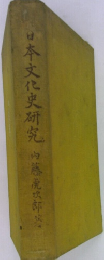 日本文化史研究
内藤虎次郎著